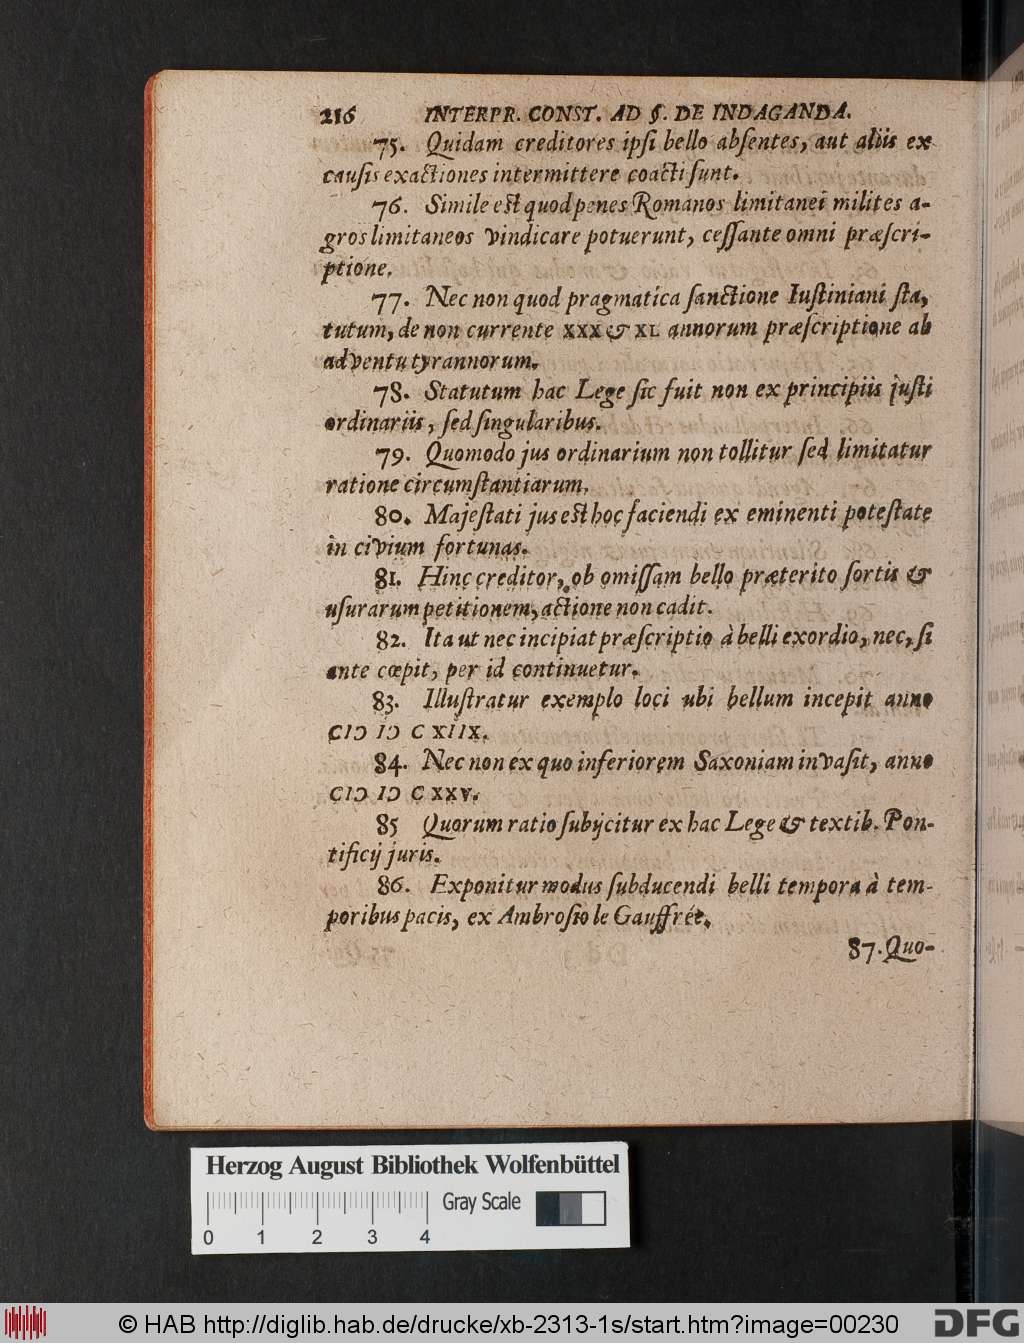 216 INTERPR. CONST. AD §. DE INDAGANDA.
75. Quidam creditores ipſi bello abſentes, aut aliis ex
cauſis exactiones intermittere coacti ſunt.
76. Simile eſt quod penes Romanos limitanei milites a-
gros limitaneos vindicare potuerunt, ceſſante omni præſcri-
ptione.
77. Nec non quod pragmatica ſanctione Iuſtiniani ſta,
tutum, de non currente XXX & XL annorum præſcriptione ab
adventu tyrannorum.
78. Statutum hac Lege ſic fuit non ex principiis juſti
ordinariis, ſed ſingularibus.
79. Quomodo jus ordinarium non tollitur ſed limitatur
ratione circumſtantiarum.
80. Majeſtati jus eſt hoc faciendi ex eminenti poteſtate
in civium fortunas.
81. Hinc creditor, ob omiſſam bello præterito ſortis &
uſurarum petitionem, actione non cadit.
82. Ita ut nec incipiat præſcriptio à belli exordio, nec, ſi
ante cœpit, per id continuetur.
83. Illuſtratur exemplo loci ubi bellum incepit anno
CIↃ IↃ C XIIX.
84. Nec non éx quo inferiorem Saxoniam invaſit, anno
CIↃ IↃ C XXV.
85 Quorum ratio ſubijcitur ex hac Lege & textib. Pon-
tificij juris.
86. Exponitur modus ſubducendi belli tempora à tem-
poribus pacis, ex Ambroſio le Gauffrée.
87. Quo-
Herzog August Bibliothek Wolfenbüttel
Gray Scale
0 1 2 3 4
© HAB http://diglib.hab.de/drucke/xb-2313-1s/start.htm?image=00230
DFG